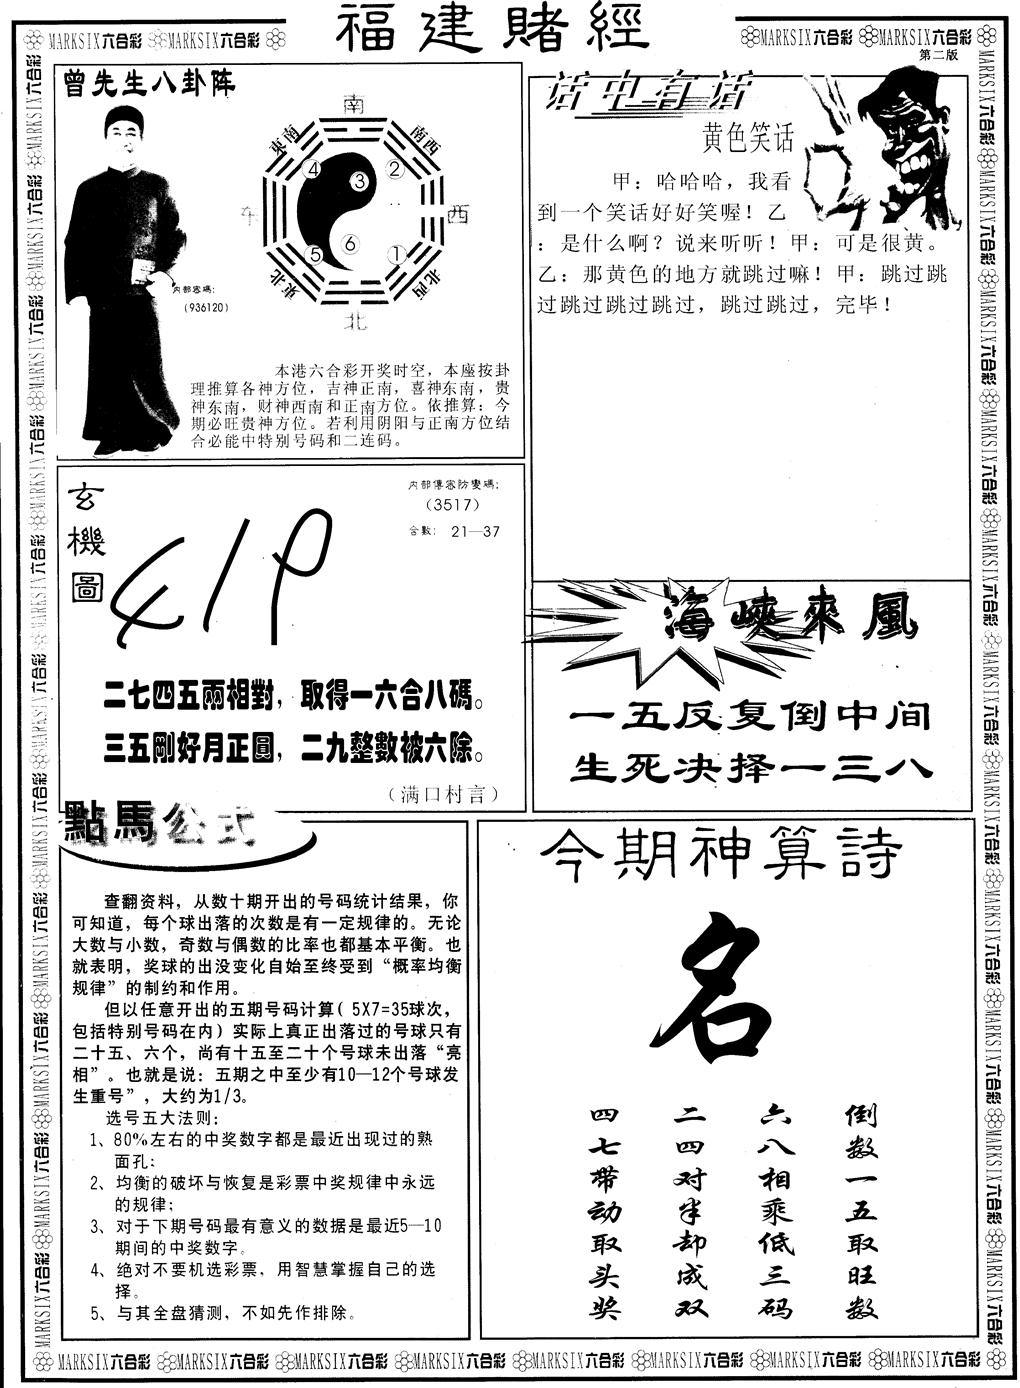 福建賭經
MARKSIX六合彩 MARKSIX六合彩
MARKSIX六合彩 MARKSIX六合彩
第二版
曾先生八卦阵
南
東南
南西
4
3
2
东
西
5
6
1
東北
北西
北
内部密碼:
(936120)
本港六合彩开奖时空，本座按卦
理推算各神方位，吉神正南，喜神东南，贵
神东南，财神西南和正南方位。依推算：今
期必旺贵神方位。若利用阴阳与正南方位结
合必能中特别号码和二连码。
话中有话
黄色笑话
甲：哈哈哈，我看
到一个笑话好好笑喔！乙
：是什么啊？说来听听！甲：可是很黄。
乙：那黄色的地方就跳过嘛！甲：跳过跳
过跳过跳过跳过，跳过跳过，完毕！
玄機圖
内部傳密防變碼:
(3517)
合數: 21—37
二七四五兩相對，取得一六合八碼。
三五剛好月正圓，二九整數被六除。
（满口村言）
海峽來風
一五反复倒中间
生死决择一三八
點馬公式
查翻资料，从数十期开出的号码统计结果，你
可知道，每个球出落的次数是有一定规律的。无论
大数与小数，奇数与偶数的比率也都基本平衡。也
就表明，奖球的出没变化自始至终受到“概率均衡
规律”的制约和作用。
但以任意开出的五期号码计算( 5X7=35球次，
包括特别号码在内）实际上真正出落过的号球只有
二十五、六个，尚有十五至二十个号球未出落“亮
相”。也就是说：五期之中至少有10—12个号球发
生重号”，大约为1/3。
选号五大法则：
1、80%左右的中奖数字都是最近出现过的熟
面孔；
2、均衡的破坏与恢复是彩票中奖规律中永远
的规律；
3、对于下期号码最有意义的数据是最近5—10
期间的中奖数字。
4、绝对不要机选彩票，用智慧掌握自己的选
择。
5、与其全盘猜测，不如先作排除。
今期神算詩
名
倒数一五取旺数
六八相乘低三码
二四对半却成双
四七带动取头奖
MARKSIX六合彩 MARKSIX六合彩 MARKSIX六合彩 MARKSIX六合彩 MARKSIX六合彩 MARKSIX六合彩 MARKSIX六合彩 MARKSIX六合彩